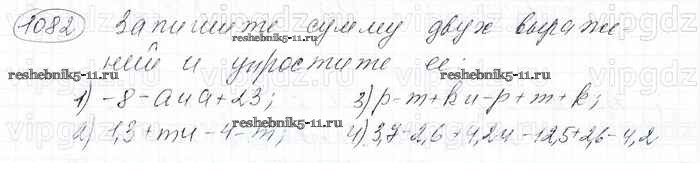 1082 Запишите сумму двух выраже-
ний и упростите её:
1) -8-a и a+23; 3) p-m+k и -p+m+k;
2) 1,3+m и -4-m; 4) 3,7-2,6+4,2 и -12,5+2,6-4,2
reshebnik5-11.ru
reshebnik5-11.ru
reshebnik5-11.ru
reshebnik5-11.ru
vipgdz